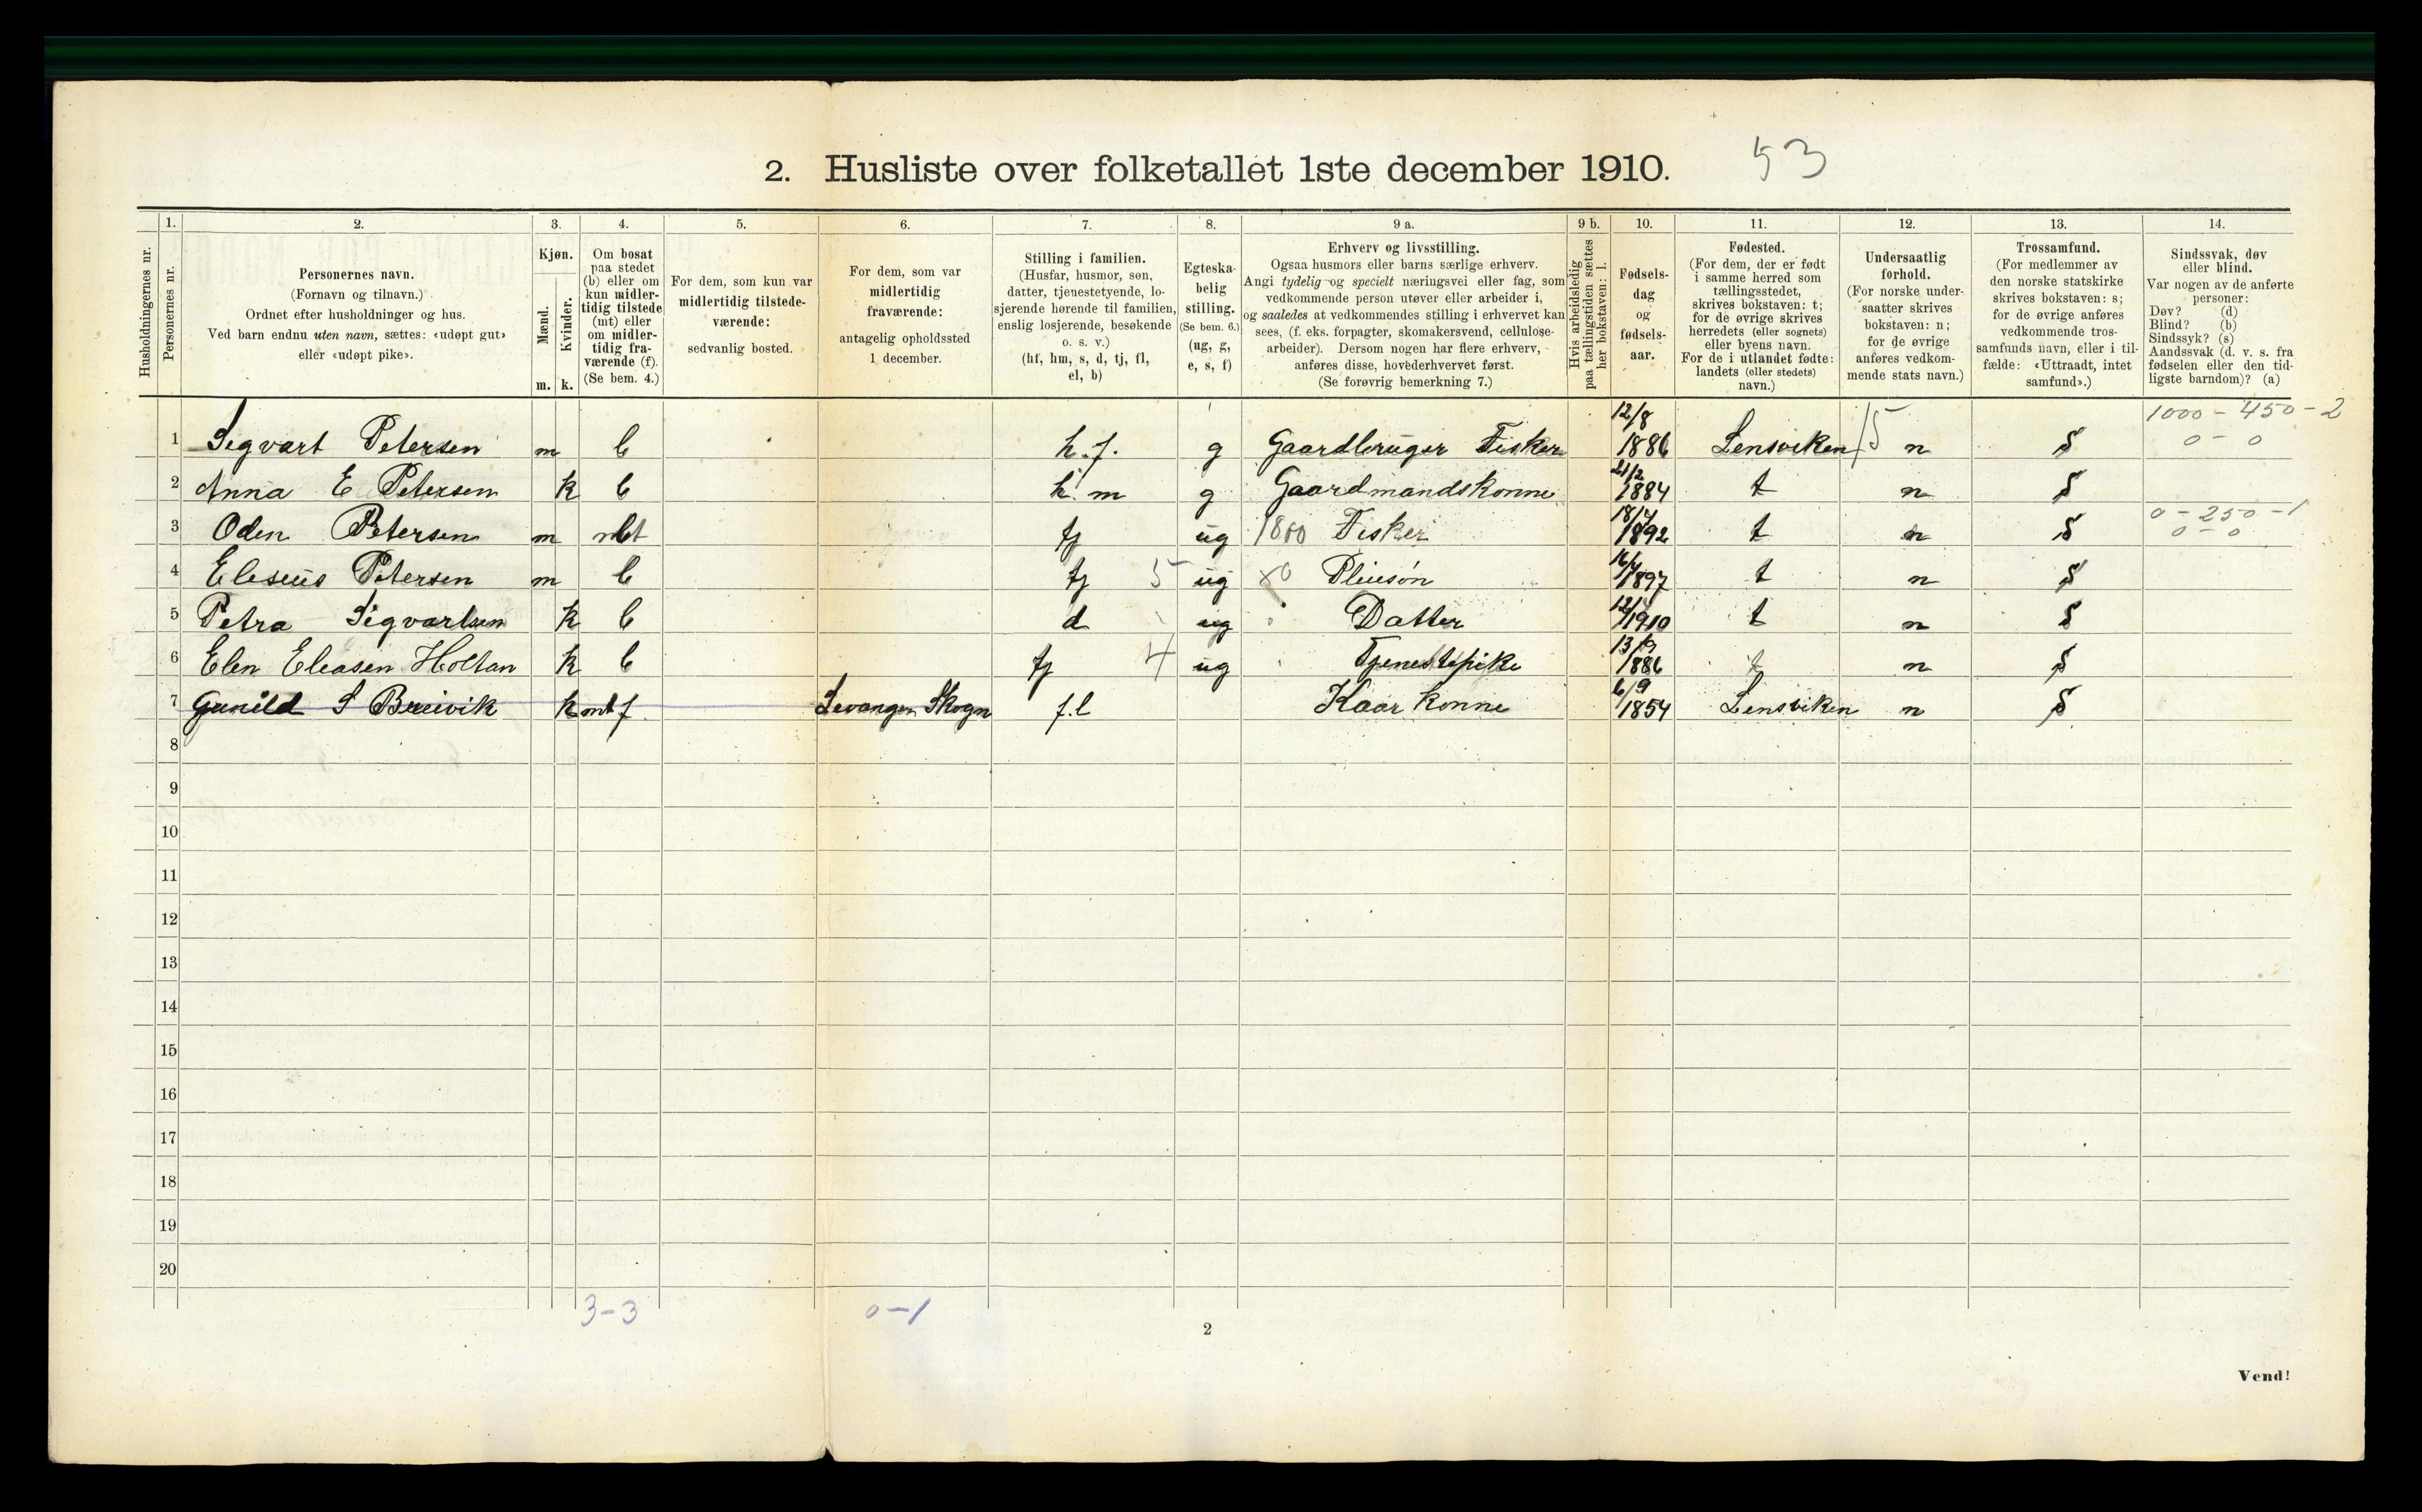 2. Husliste over folketallet 1ste december 1910. 53
Husholdningernes nr.
1.
Personernes nr.
2.
Personernes navn.
(Fornavn og tilnavn.)
Ordnet efter husholdninger og hus.
Ved barn endnu uten navn, sættes: «udøpt gut»
eller «udøpt pike».
3.
Kjøn.
Mænd.
Kvinder.
m. k.
4.
Om bosat
paa stedet
(b) eller om
kun midler-
tidig tilstede
(mt) eller
om midler-
tidig fra-
værende (f).
(Se bem. 4.)
5.
For dem, som kun var
midlertidig tilstede-
værende:
sedvanlig bosted.
6.
For dem, som var
midlertidig
fraværende:
antagelig opholdssted
1 december.
7.
Stilling i familien.
(Husfar, husmor, søn,
datter, tjenestetyende, lo-
sjerende hørende til familien,
enslig losjerende, besøkende
o. s. v.)
(hf, hm, s, d, tj, fl,
el, b)
8.
Egteska-
belig
stilling.
(Se bem. 6.)
(ug, g,
e, s, f)
9 a.
Erhverv og livsstilling.
Ogsaa husmors eller barns særlige erhverv.
Angi tydelig og specielt næringsvei eller fag, som
vedkommende person utøver eller arbeider i,
og saaledes at vedkommendes stilling i erhvervet kan
sees, (f. eks. forpagter, skomakersvend, cellulose-
arbeider). Dersom nogen har flere erhverv,
anføres disse, hovederhvervet først.
(Se forøvrig bemerkning 7.)
9 b.
Hvis arbeidsledig
paa tællingstiden sættes
her bokstaven: l.
10.
Fødsels-
dag
og
fødsels-
aar.
11.
Fødested.
(For dem, der er født
i samme herred som
tællingsstedet,
skrives bokstaven: t;
for de øvrige skrives
herredets (eller sognets)
eller byens navn.
For de i utlandet fødte:
landets (eller stedets)
navn.)
12.
Undersaatlig
forhold.
(For norske under-
saatter skrives
bokstaven: n;
for de øvrige
anføres vedkom-
mende stats navn.)
13.
Trossamfund.
(For medlemmer av
den norske statskirke
skrives bokstaven: s;
for de øvrige anføres
vedkommende tros-
samfunds navn, eller i til-
fælde: «Uttraadt, intet
samfund».)
14.
Sindssvak, døv
eller blind.
Var nogen av de anførte
personer:
Døv? (d)
Blind? (b)
Sindssyk? (s)
Aandssvak (d. v. s. fra
fødselen eller den tid-
ligste barndom)? (a)
1 Sigvart Petersen m b h.f. g Gaardbruger Fisker 12/8 1886 Lensviken 15 n S 1000 - 450 - 2
0 - 0
2 Anna E Petersen k b h m g Gaardmandskonne 21/2 1884 t n S
3 Oden Petersen m mbt tj ug 1800 Fisker 18/4 1892 t n S 0 - 250 - 1
0 - 0
4 Eliseus Petersen m b tj 5 ug Pleiesøn 16/4 1897 t n S
5 Petra Sigvartsen k b d ug Datter 1910 t n S
6 Elen Eleasen Holtan k b tj 4 ug Tjenestepike 13/9 1886 t n S
7 Gunild S Breivik k mt f Levangen Skogn f.l Kaar konne 6/9 1854 Lensviken n S
8
9
10
11
12
13
14
15
16
17
18
19
20
3-3 0-1
2
Vend!